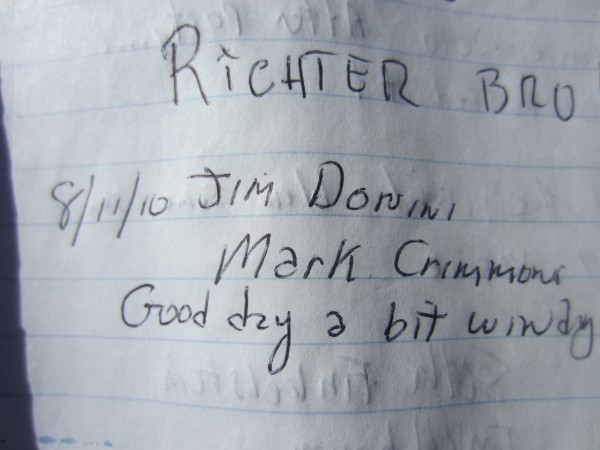 RiCHTER BRO
8/11/10 JIM DONINI
Mark Crimmons
Good day a bit windy